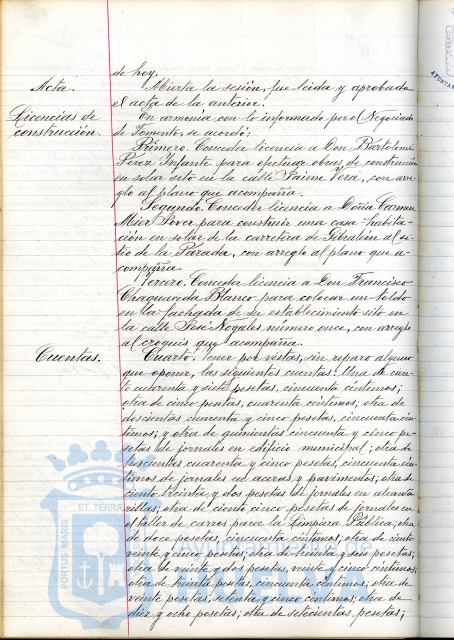 de hoy.
Acta.
Abierta la sesión, fue leida y aprobada
el acta de la anterior.
Licencias de
construcción.
En armonía con lo informado por el Negociado
de Fomento, se acordó:
Primero. Conceder licencia a Don Bártolomé
Pérez Infante para efectuar obras de construcción
en solar sito en la calle Jaime Vera, con arre-
glo al plano que acompaña.
Segundo. Conceder licencia a Doña Carmen
Mier para construir una casa-habita-
ción en solar de la carretera de Gibraleón al si-
tio de la Parada, con arreglo al plano que a-
compaña.
Tercero. Conceder licencia a Don Francisco
Chaguaceda Blanco para colocar un toldo
en la fachada de su establecimiento sito en
la calle José Nogales número once, con arreglo
al croquis que acompaña.
Cuentas.
Cuarto. Tener por vistas, sin reparo alguno
que oponer, las siguientes cuentas: Una de cien-
to cuarenta y siete pesetas, cincuenta céntimos;
otra de cinco pesetas, cuarenta céntimos; otra de
doscientas cuarenta y cinco pesetas, cincuenta cén-
timos; y otra de quinientas cincuenta y cinco pe-
setas de jornales en edificio municipal; otra de
trescientas cuarenta y cinco pesetas, cincuenta cén-
timos de jornales en aceras y pavimentos; otra de
ciento treinta y dos pesetas de jornales en alcanta
rillas; otra de ciento cinco pesetas de jornales en
el taller de carros para la Limpieza Pública; otra
de doce pesetas, cincuenta céntimos; otra de ciento
veinte y cinco pesetas; otra de treinta y seis pesetas;
otra de veinte y dos pesetas, veinte y cinco céntimos;
otra de treinta pesetas, cincuenta céntimos; otra de
veinte pesetas, setenta y cinco céntimos; otra de
diez y ocho pesetas; otra de setecientas pesetas;
PORTUS MARIS
ET TERRAE